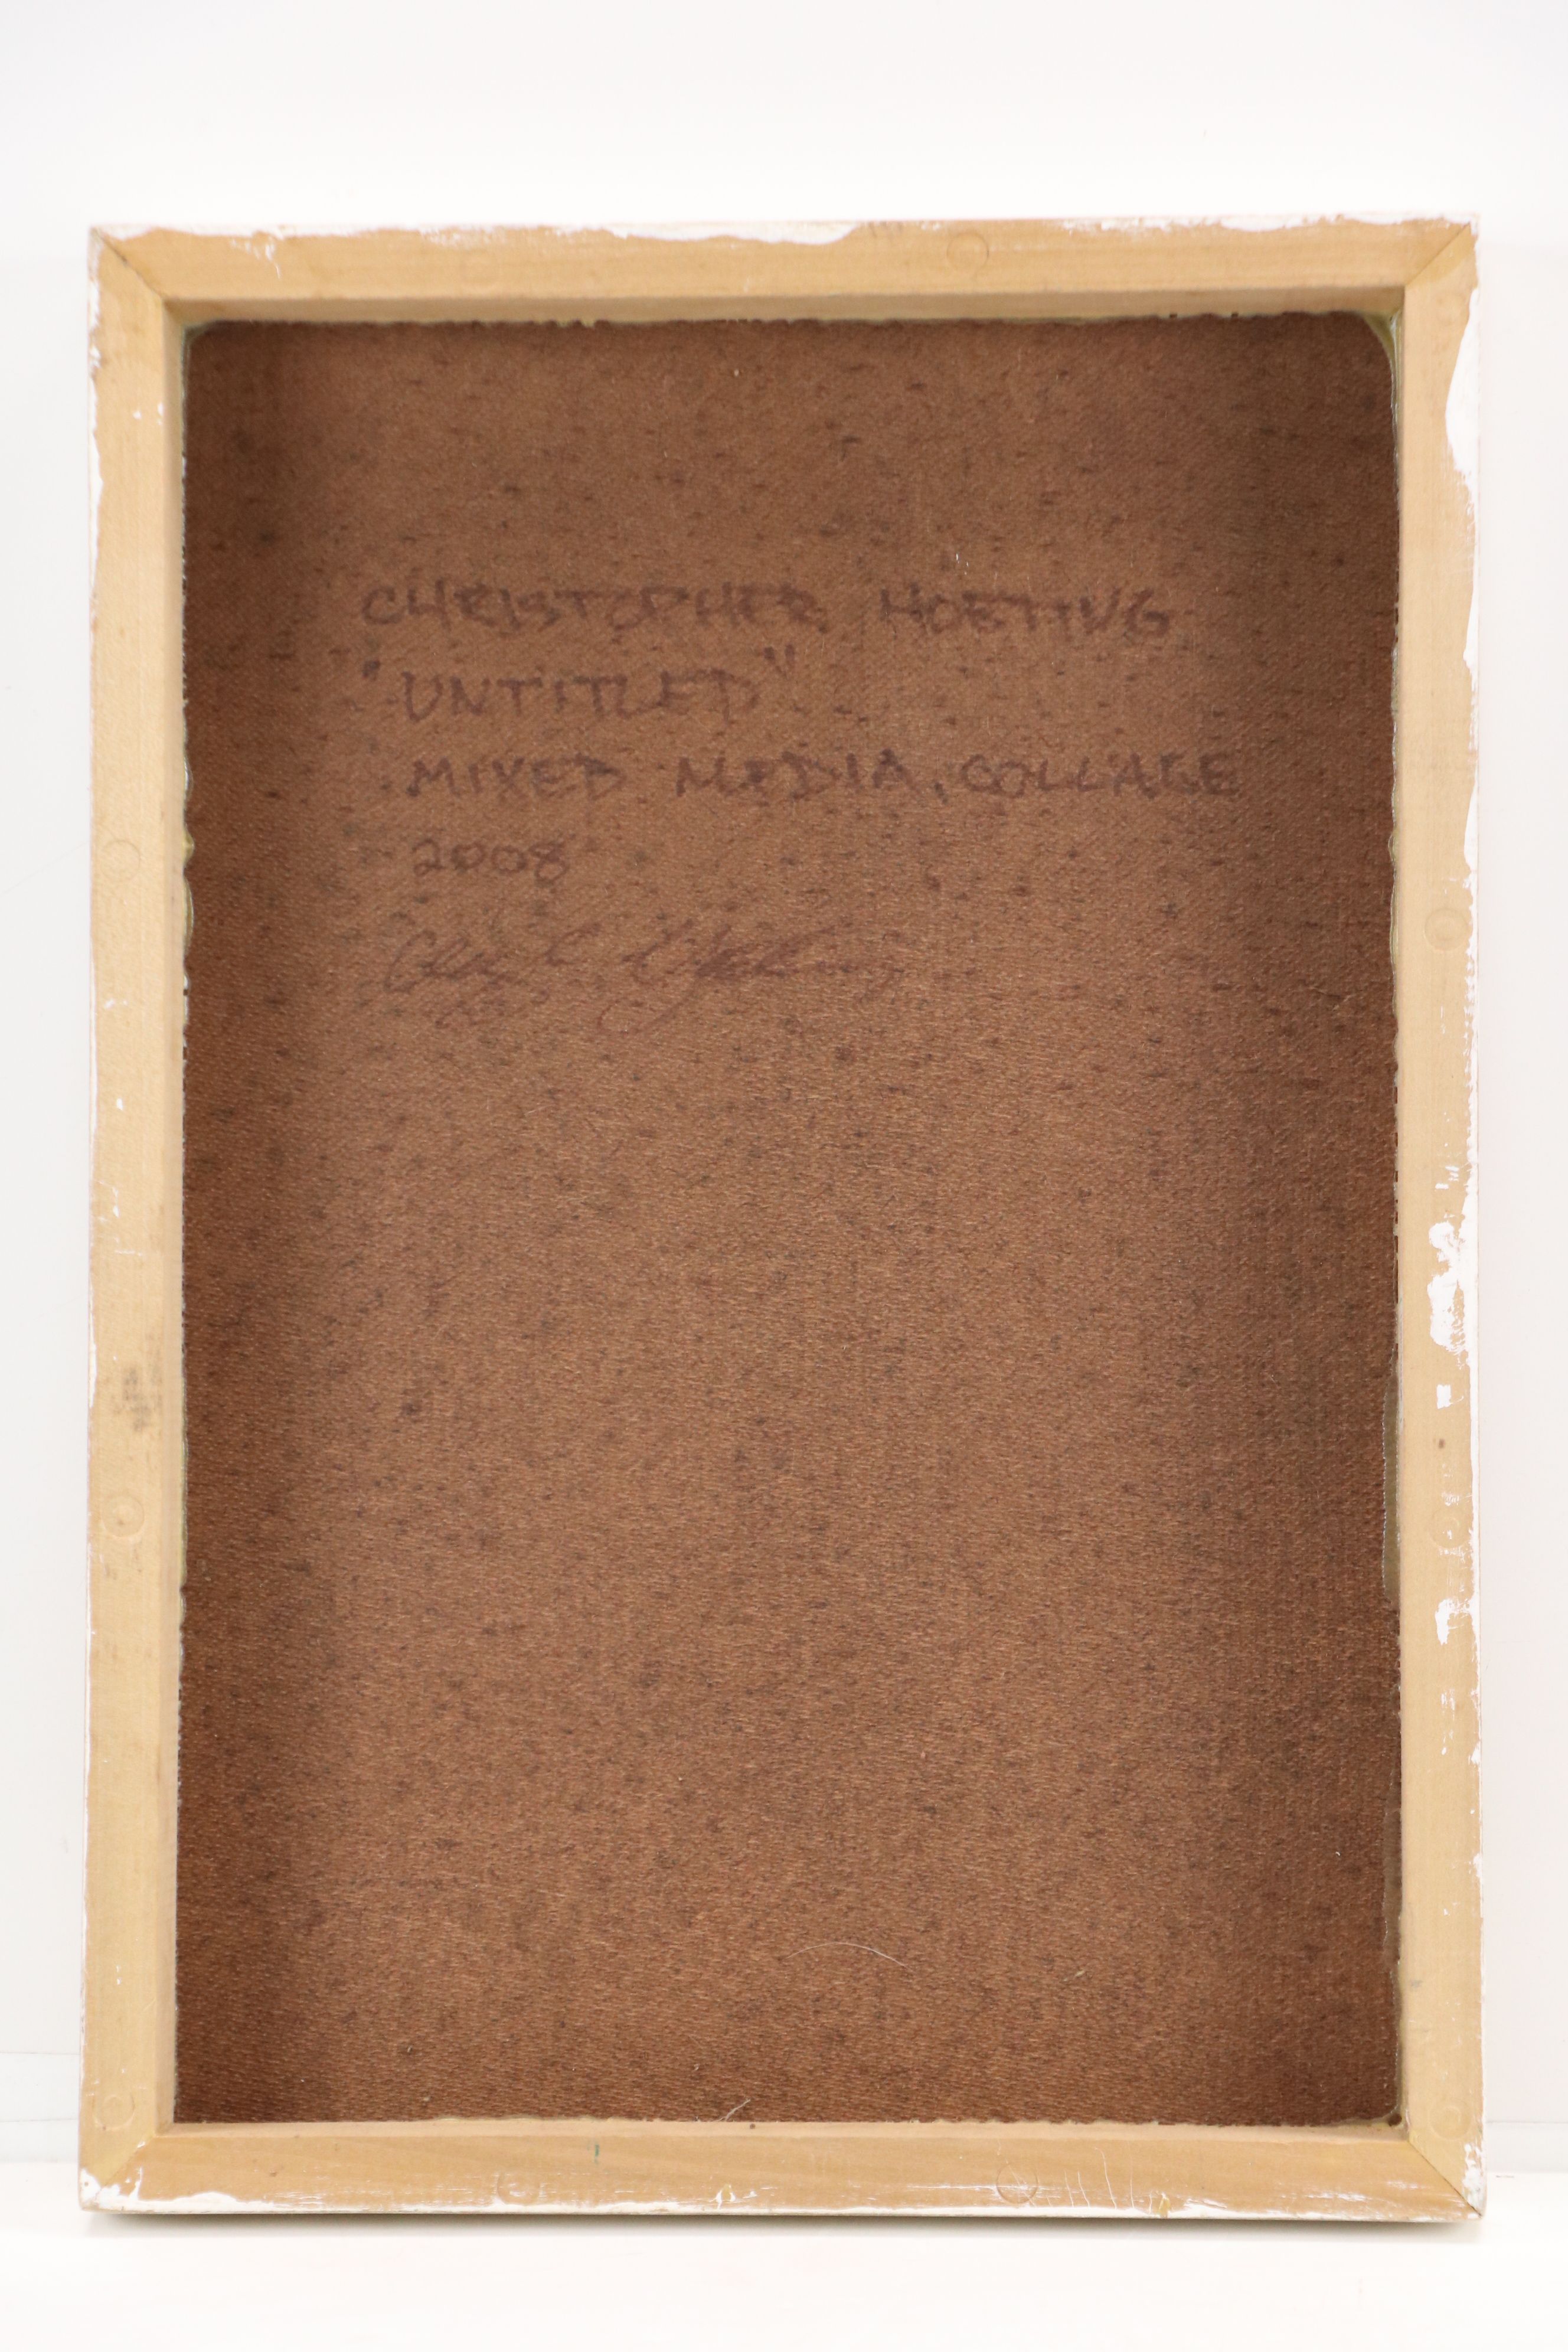 CHRISTOPHER HOETING
"UNTITLED"
MIXED MEDIA, COLLAGE
2008